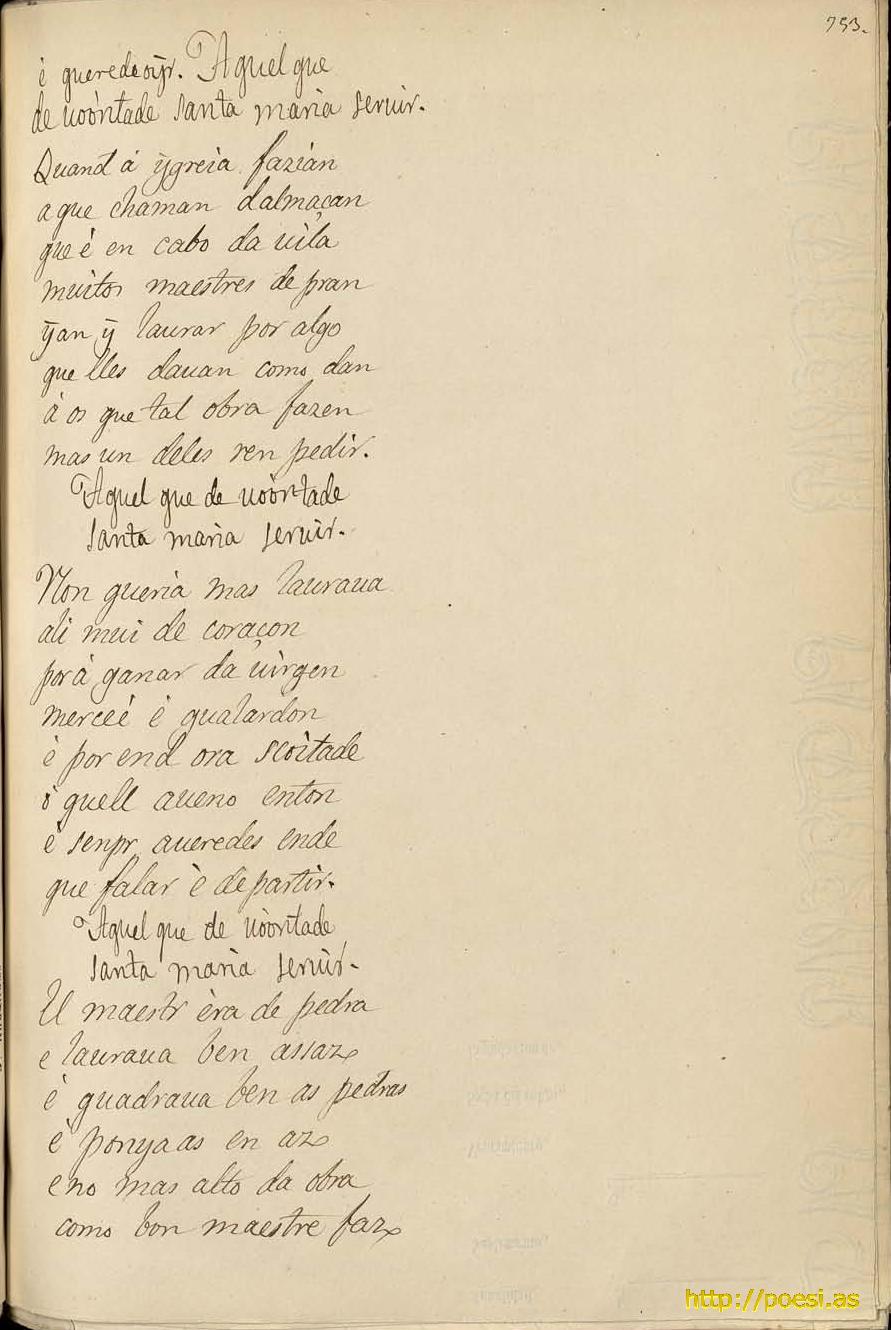 753.
è queredeoỹr. Aquel que
de uoòntade santa maria seruir.
Quand á ỹgreia fazian
a que chaman dalmaçan
que é en cabo da uila
muitos maestres de pran
ỹan ỹ laurar por algo
que lles dauan como dan
á os que tal obra fazen
mas un deles ren pedir.
Aquel que de uoòntade
santa maria seruir.
Non queria mas lauraua
ali mui de coraçon
porá ganar da uirgen
merceé é gualardon
è por end ora scoitade
ó quell aueno enton
é senpr aueredes ende
que falar è departir.
Aquel que de uoòntade
santa maria seruir.
U maestr èra de pedra
e lauraua ben assaz
é quadraua ben as pedras
é ponya as en az
eno mas alto da obra
como bon maestre faz
http://poesi.as